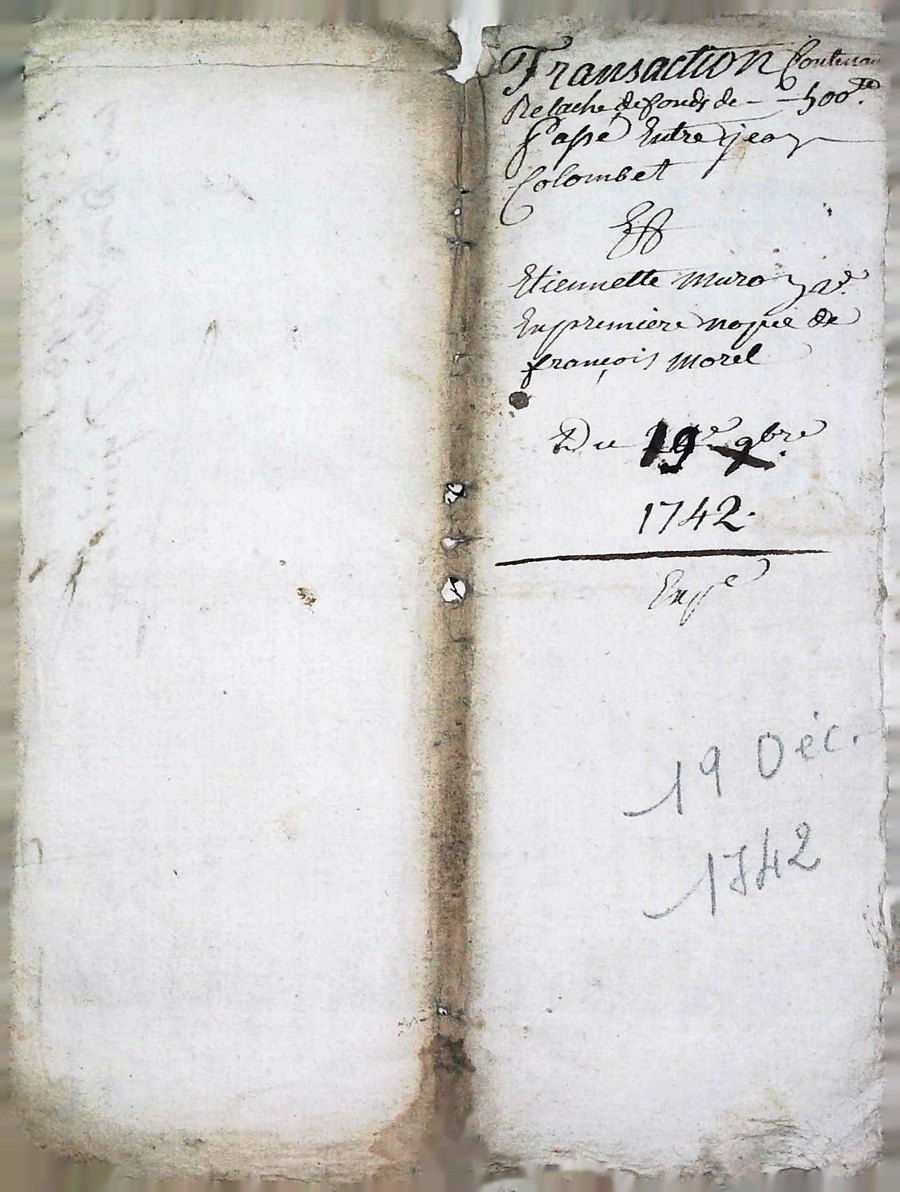 Transaction Contenan
Relache de fonds de - 500.
Passé Entre jean
Colombet
Et
Etiennette muron ve.
En premiere nopce de
françois morel
Du 19e 9bre
1742.
Expe
19 Déc.
1742